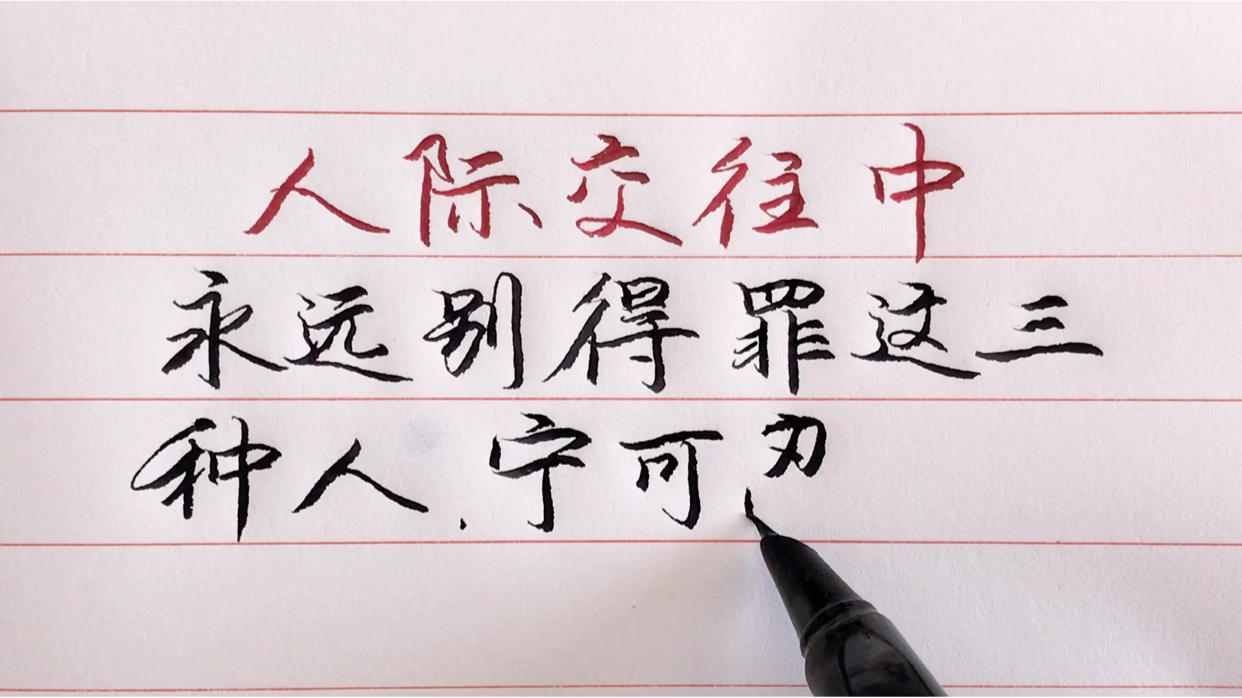 人际交往中
永远别得罪这三
种人.宁可